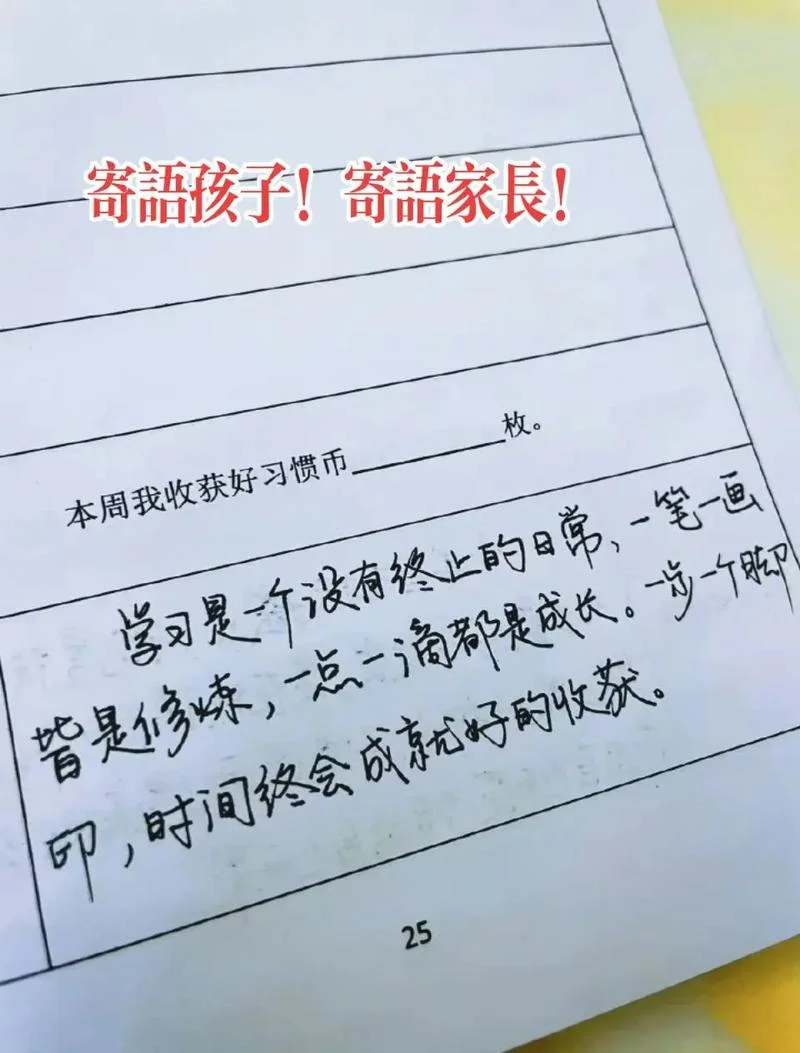 寄語孩子！寄語家長！
本周我收获好习惯币________枚。
学习是一个没有终止的日常，一笔一画
皆是修炼，一点一滴都是成长。一步一个脚
印，时间终会成就好的收获。
25